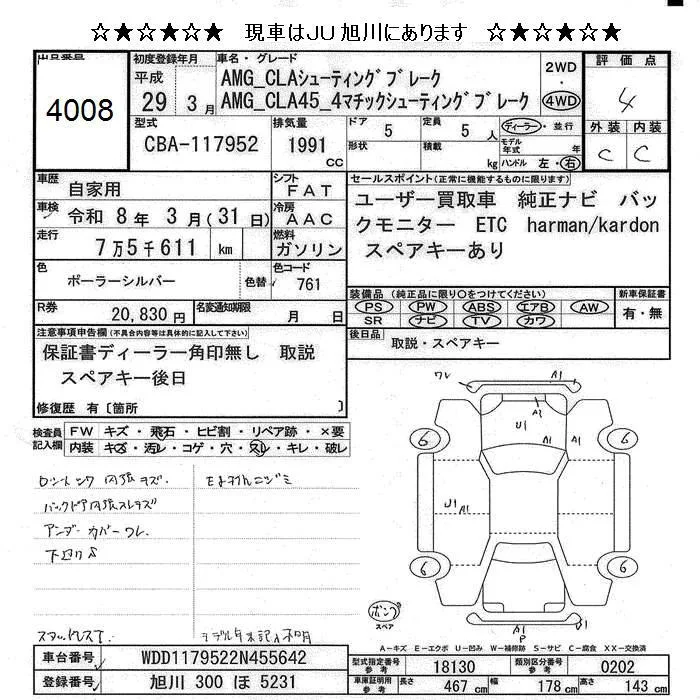 ☆★☆★☆★ 現車はJU旭川にあります ☆★☆★☆★
出品番号
4008
初度登録年月
平成
29 3月
車名・グレード
AMG_CLAシューティングブレーク
AMG_CLA45_4マチックシューティングブレーク
2WD
・
4WD
評価点
4
外装 内装
C C
型式
CBA-117952
排気量
1991
CC
ドア 5
定員 5人
形状
積載 kg
ディーラー・並行
モデル年式 年
ハンドル 左・右
車歴 自家用
シフト FAT
車検 令和 8年 3月(31日)
冷房 AAC
走行 7万5千611 km
燃料 ガソリン
色 ポーラーシルバー
色替
色コード 761
R券 20,830円
名変通知期限 月 日
セールスポイント(正常に機能するものに限ります)
ユーザー買取車 純正ナビ バッ
クモニター ETC harman/kardon
スペアキーあり
装備品(純正品に限り○をつけてください)
PS PW ABS エアB AW
SR ナビ TV カワ
新車保証書
有・無
後日品
取説・スペアキー
注意事項申告欄(不具合内容等は具体的に記入して下さい)
保証書ディーラー角印無し 取説
スペアキー後日
修復歴 有〔箇所 〕
検査員記入欄
FW キズ・飛石・ヒビ割・リペア跡・×要
内装 キズ・汚レ・コゲ・穴・スレ・キレ・破レ
バックドア内張スレキズ
アンダーカバーワレ
下回りS
ワレ A1 A1
U1 A1
A1 A1
6 6
U1 A1
6 6
A1 A1
P
パンク
スペア
A-キズ E-エクボ U-凹み W-補修跡 S-サビ C-腐食 XX-交換済
車台番号 WDD1179522N455642
登録番号 旭川 300 ほ 5231
型式指定番号 18130
類別区分番号 0202
車庫証明用参考
長さ 467cm
幅 178cm
高さ 143cm